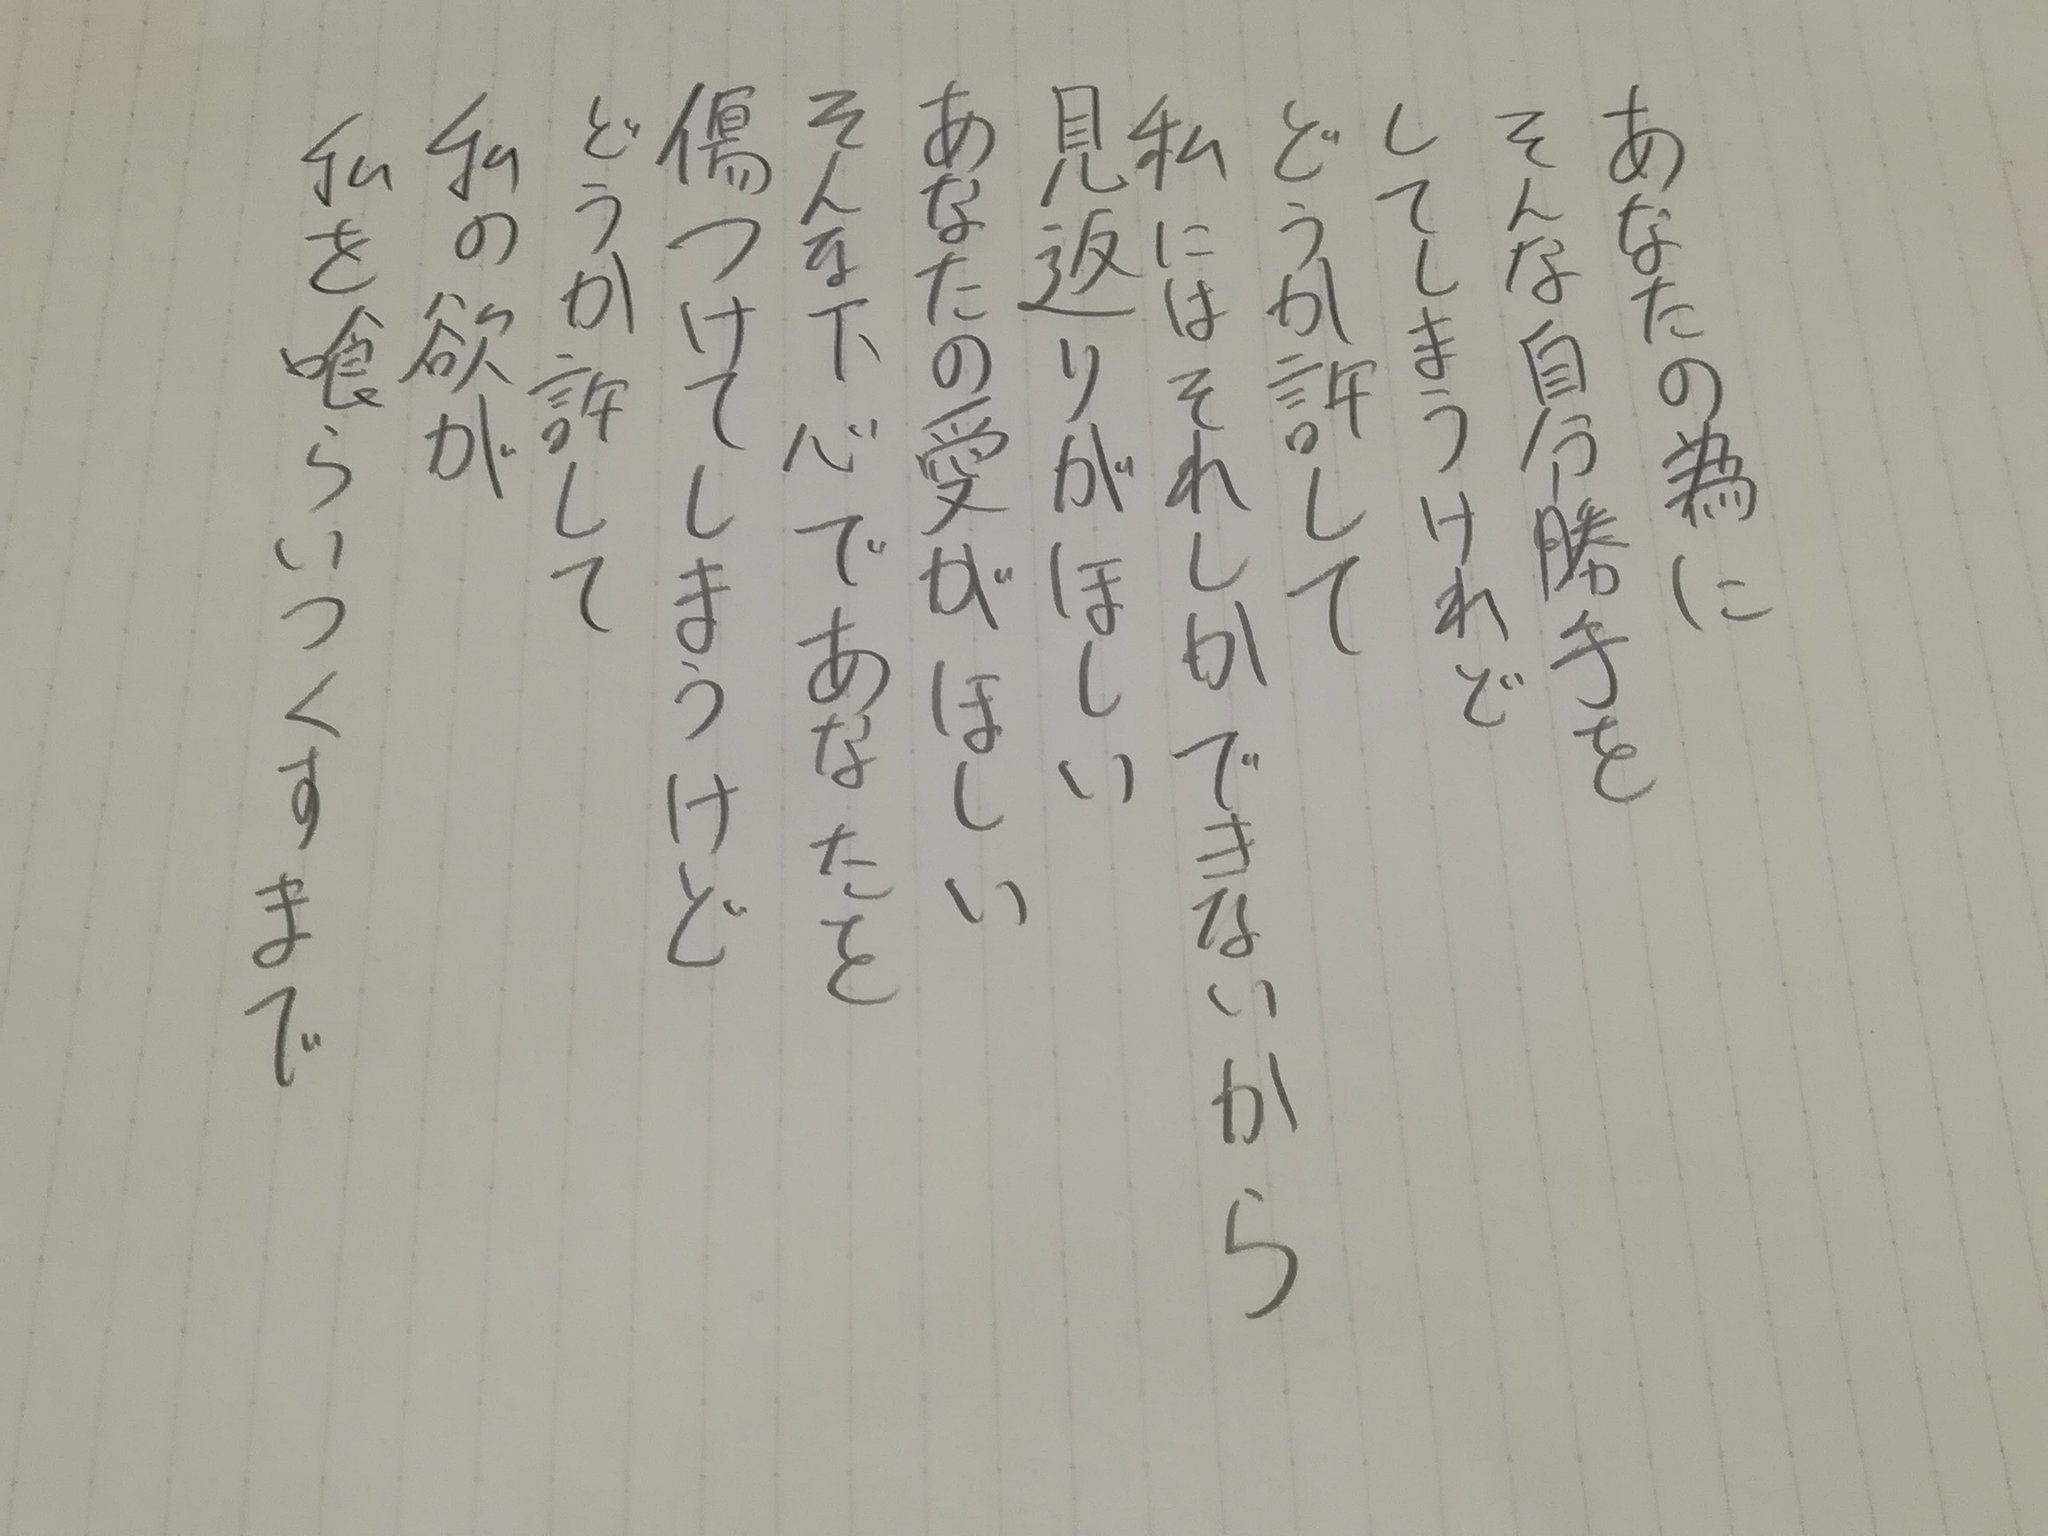 あなたの為に
そんな自分勝手を
してしまうけれど
どうか許して
私にはそれしかできないから
見返りがほしい
あなたの愛がほしい
そんな下心であなたを
傷つけてしまうけど
どうか許して
私の欲が
私を喰らいつくすまで